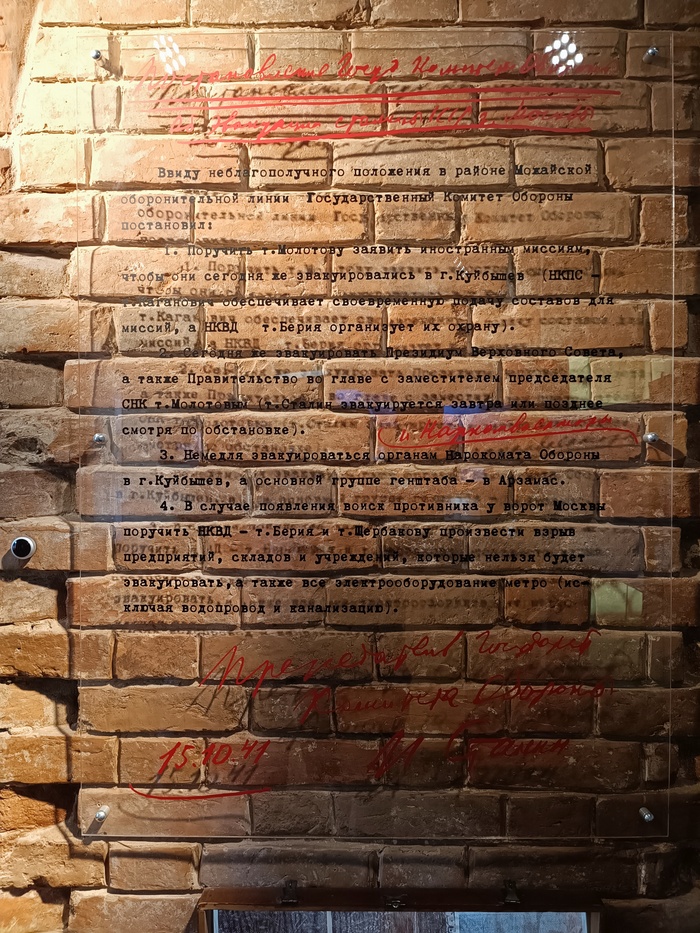 Постановление Госуд. Комитета Обороны
Об эвакуации столицы СССР г. Москвы
Ввиду неблагополучного положения в районе Можайской
оборонительной линии Государственный Комитет Обороны
постановил:
1. Поручить т.Молотову заявить иностранным миссиям,
чтобы они сегодня же эвакуировались в г.Куйбышев (НКПС –
т.Каганович обеспечивает своевременную подачу составов для
миссий, а НКВД т.Берия организует их охрану).
2. Сегодня же эвакуировать Президиум Верховного Совета,
а также Правительство во главе с заместителем председателя
СНК т.Молотовым (т.Сталин эвакуируется завтра или позднее
смотря по обстановке).
3. Немедля эвакуироваться органам Наркомата Обороны и Наркомвоенмора
в г.Куйбышев, а основной группе генштаба – в Арзамас.
4. В случае появления войск противника у ворот Москвы
поручить НКВД – т.Берия и т.Щербакову произвести взрыв
предприятий, складов и учреждений, которые нельзя будет
эвакуировать,а также все электрооборудование метро (ис-
ключая водопровод и канализацию).
Председатель Государств.
Комитета Обороны
И Сталин
15.10.41